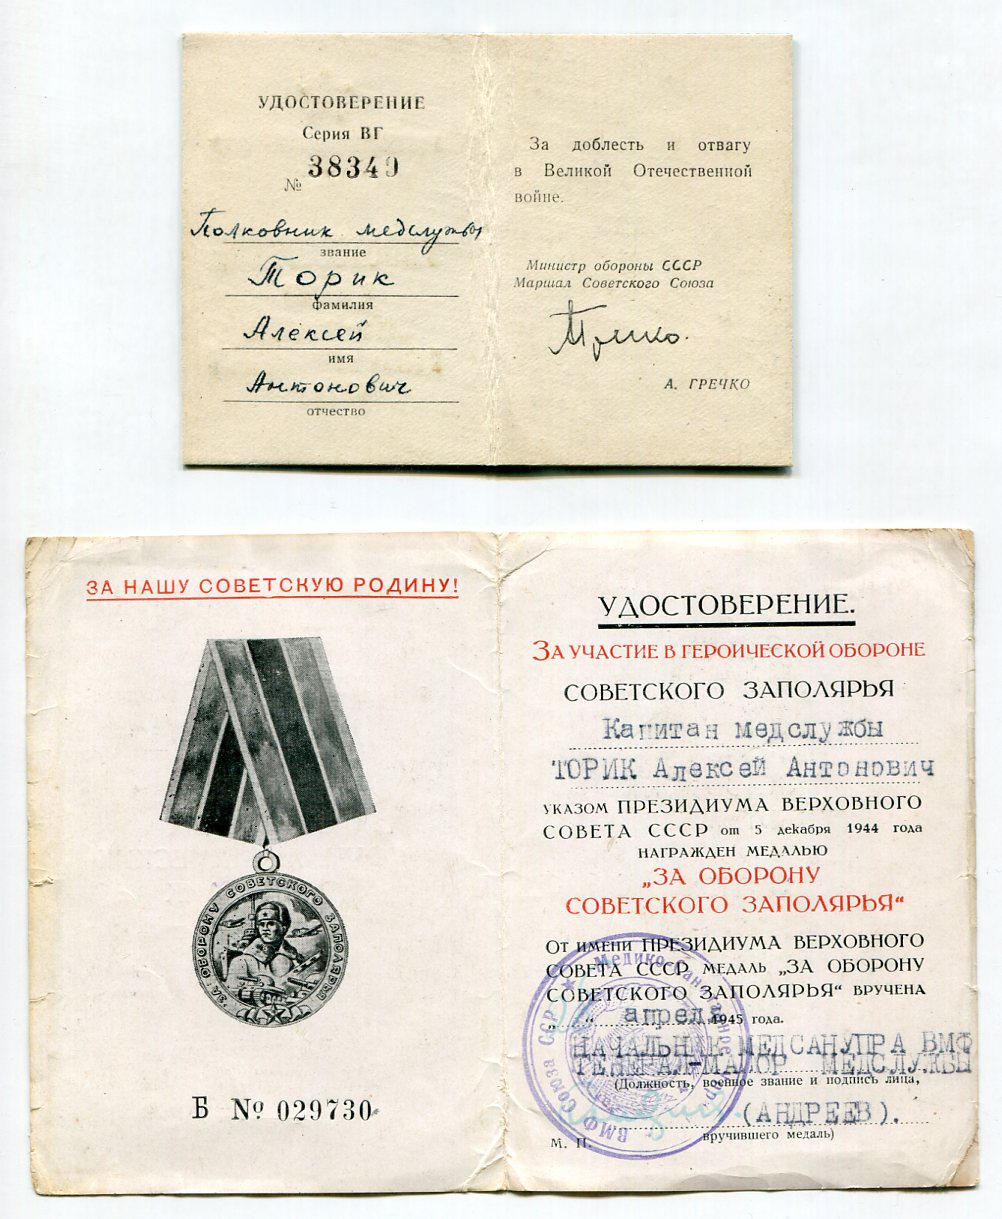 УДОСТОВЕРЕНИЕ
Серия ВГ
№ 38340
Полковник медслужбы
звание
Торик
фамилия
Алексей
имя
Антонович
отчество
За доблесть и отвагу
в Великой Отечественной
войне.
Министр обороны СССР
Маршал Советского Союза
Гречко.
А. ГРЕЧКО
ЗА НАШУ СОВЕТСКУЮ РОДИНУ!
ЗА ОБОРОНУ СОВЕТСКОГО ЗАПОЛЯРЬЯ
Б № 029730
УДОСТОВЕРЕНИЕ.
ЗА УЧАСТИЕ В ГЕРОИЧЕСКОЙ ОБОРОНЕ
СОВЕТСКОГО ЗАПОЛЯРЬЯ
Капитан медслужбы
ТОРИК Алексей Антонович
УКАЗОМ ПРЕЗИДИУМА ВЕРХОВНОГО
СОВЕТА СССР от 5 декабря 1944 года
НАГРАЖДЕН МЕДАЛЬЮ
„ЗА ОБОРОНУ
СОВЕТСКОГО ЗАПОЛЯРЬЯ“
ОТ ИМЕНИ ПРЕЗИДИУМА ВЕРХОВНОГО
СОВЕТА СССР МЕДАЛЬ „ЗА ОБОРОНУ
СОВЕТСКОГО ЗАПОЛЯРЬЯ“ ВРУЧЕНА
„ “ апреля 1945 года.
НАЧАЛЬНИК МЕДСАНУПРА ВМФ
ГЕНЕРАЛ-МАЙОР МЕДСЛУЖБЫ
(Должность, военное звание и подпись лица,
(АНДРЕЕВ).
М. П. вручившего медаль)
ВМФ Союза ССР Медико-Санитарное